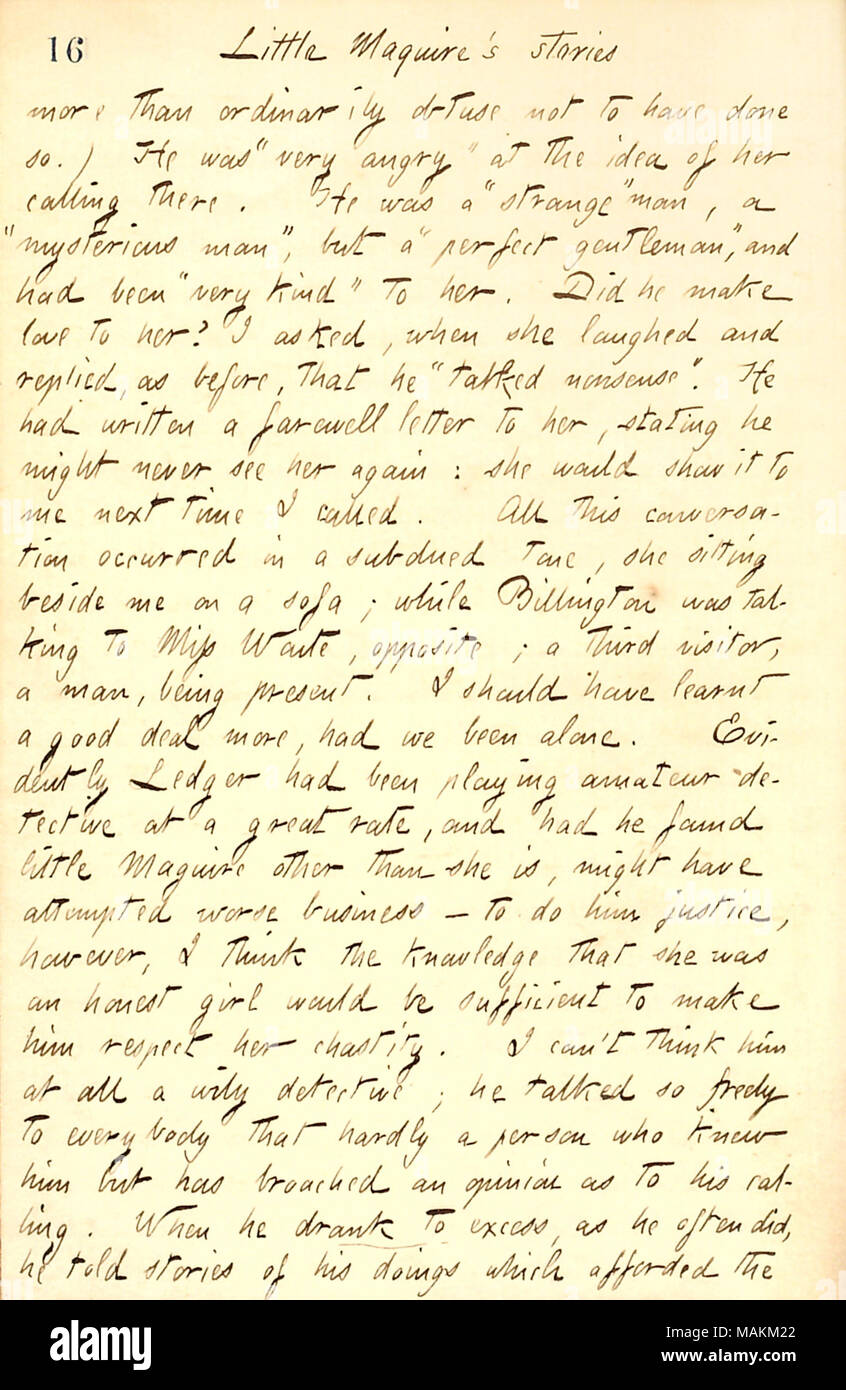 16 Little Maguire's stories
more than ordinarily obtuse not to have done
so.) He was "very angry" at the idea of her
calling there. He was a "strange" man, a
"mysterious man", but a "perfect gentleman", and
had been "very kind" to her. Did he make
love to her? I asked, when she laughed and
replied, as before, that he "talked nonsense". He
had written a farewell letter to her, stating he
might never see her again: she would show it to
me next time I called. All this conversa-
tion occurred in a subdued tone, she sitting
beside me on a sofa; while Billington was tal-
king to Miss Waite, opposite; a third visitor,
a man, being present. I should have learnt
a good deal more, had we been alone. Evi-
dently Ledger had been playing amateur de-
tective at a great rate, and had he found
little Maguire other than she is, might have
attempted worse business — to do him justice,
however, I think the knowledge that she was
an honest girl would be sufficient to make
him respect her chastity. I can't think him
at all a wily detective; he talked so freely
to everybody that hardly a person who knew
him but has broached an opinion as to his cal-
ling. When he drank to excess, as he often did,
he told stories of his doings which afforded the
alamy
Image ID: MAKM22
www.alamy.com